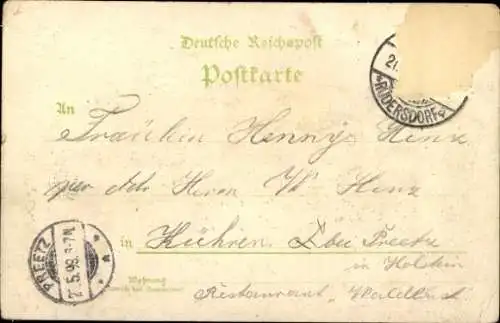 Deutsche Reichspost
Postkarte
An
Fräulein Henny Henz
per Adr Herrn W Henz
in Kühren bei Preetz
in Holstein
Wohnung
Restaurant Waldlust
21.
RÜDERSDORF
PREETZ
5.99. 6-7N.